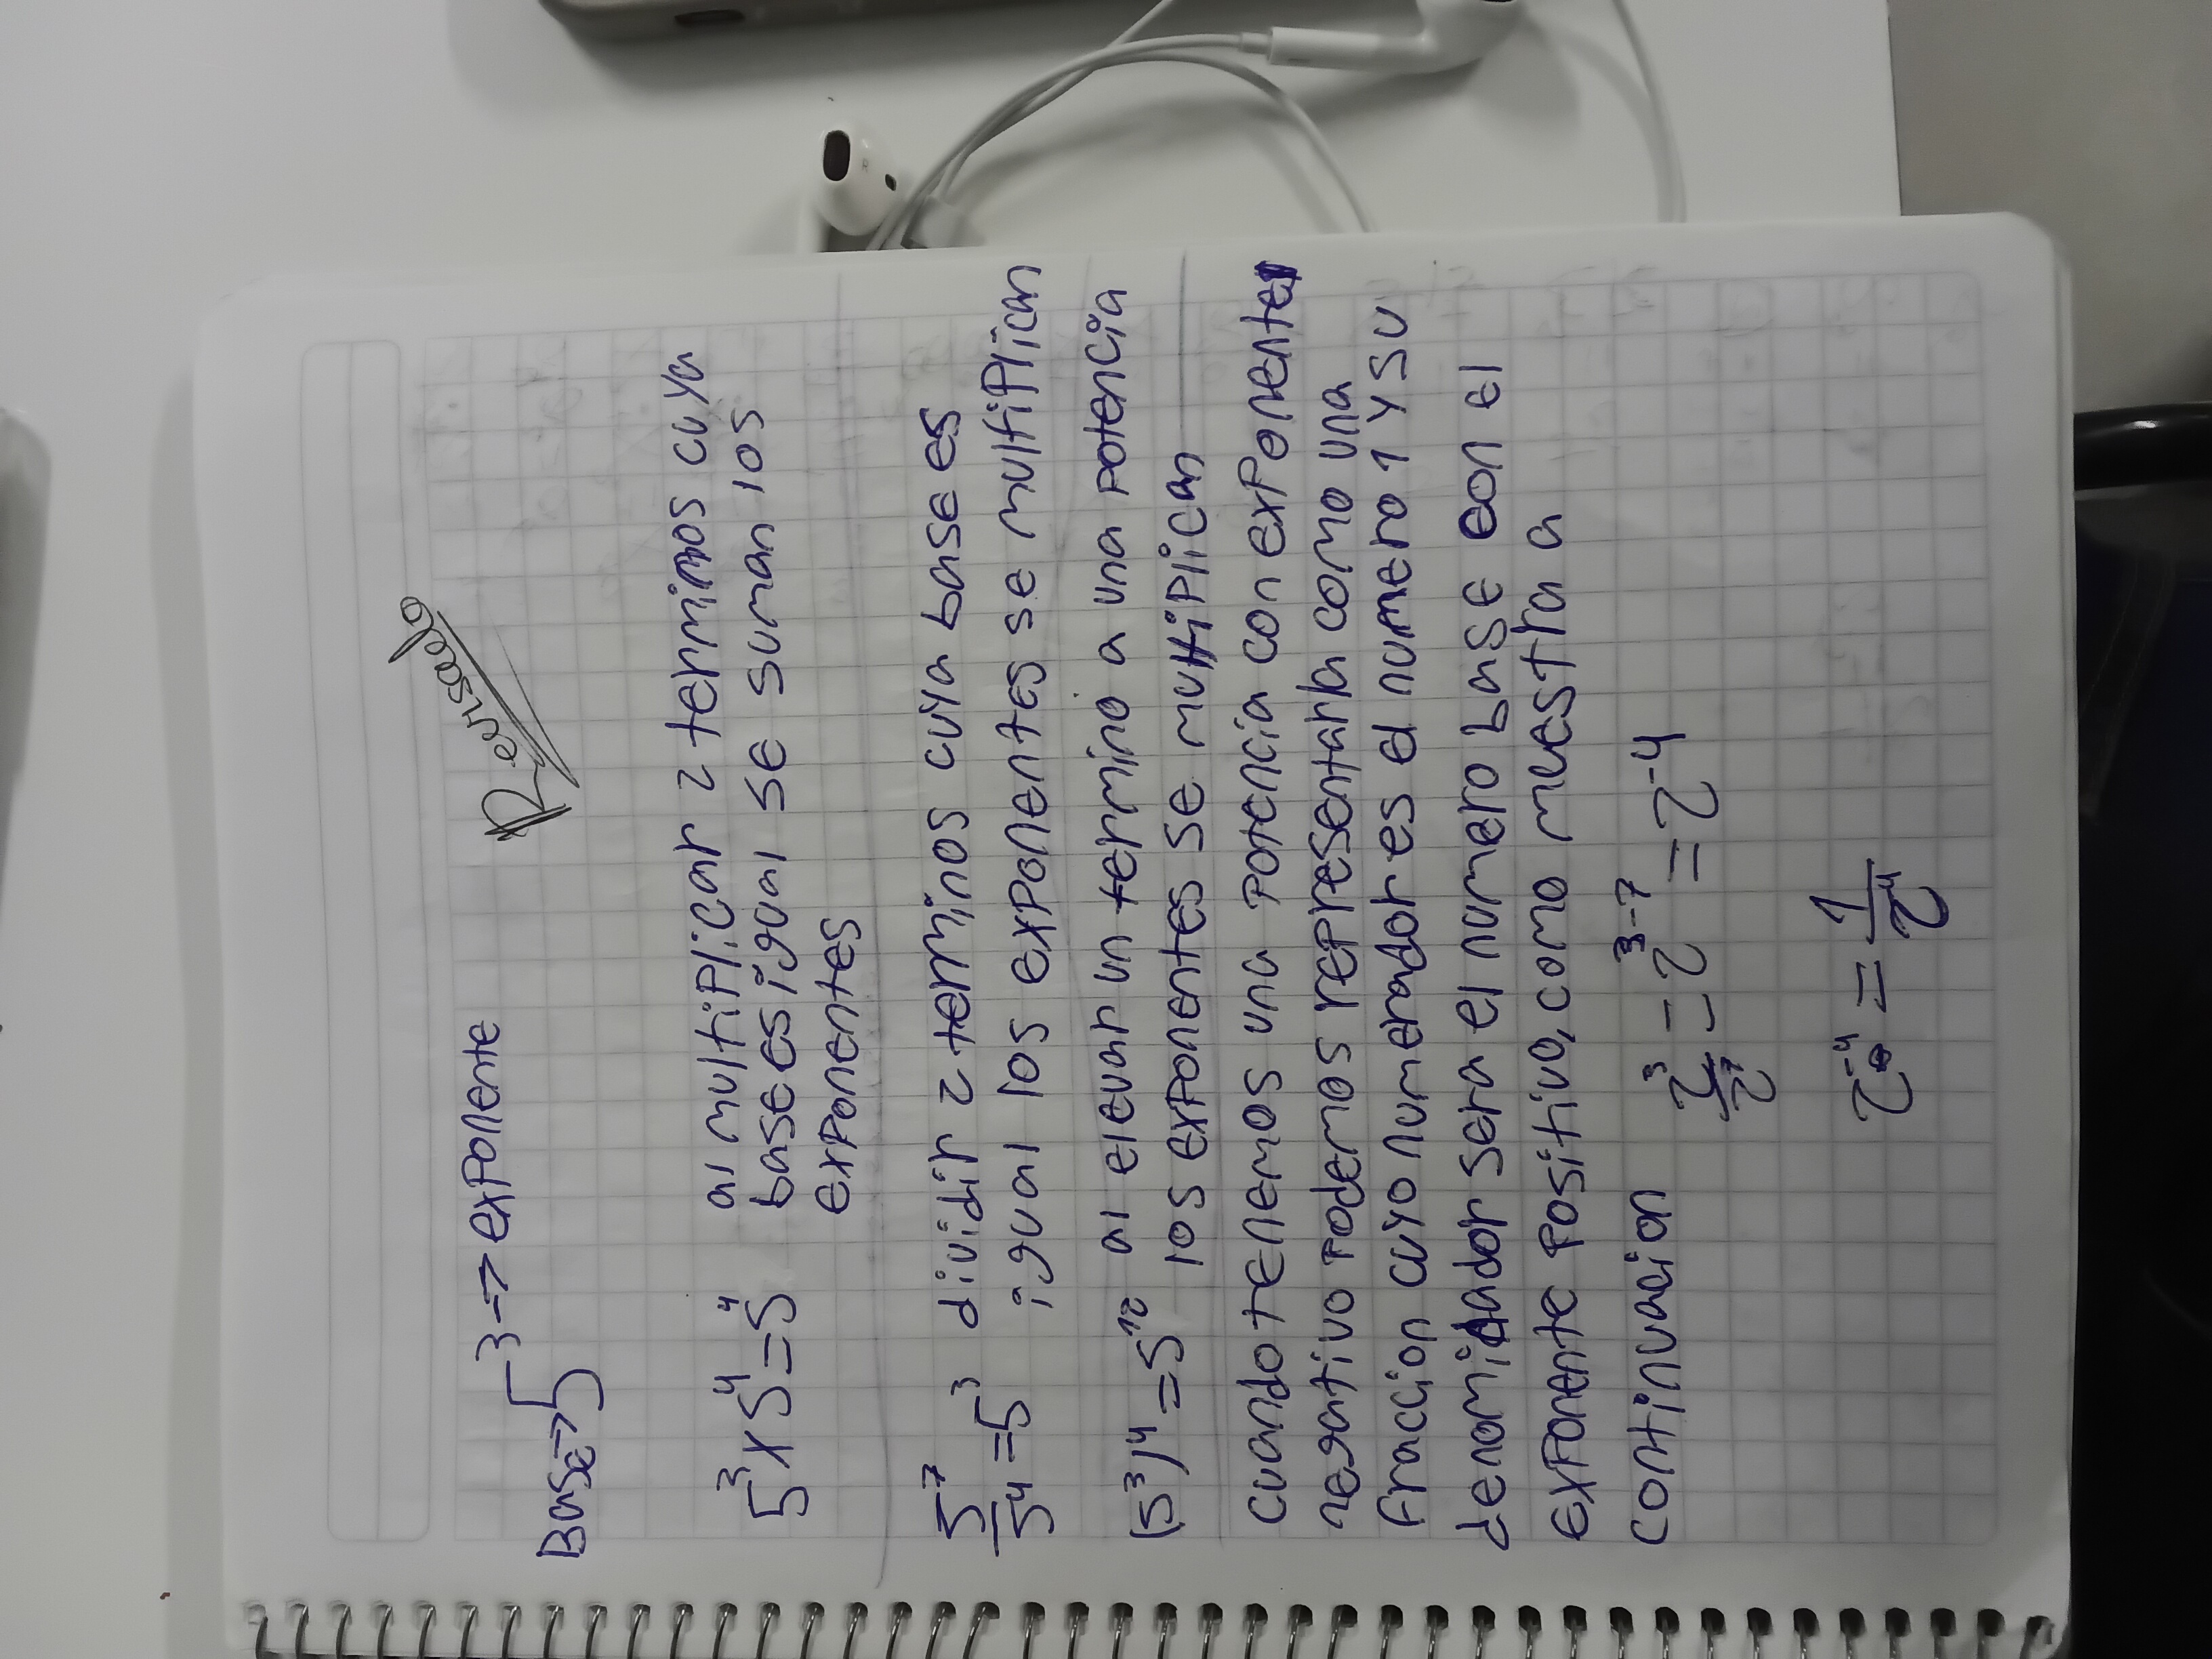 Revisado
Base→5³→exponente
5³x5⁴=5⁴ al multiplicar 2 terminos cuya
base es igual se suman los
exponentes
5⁷/5⁴=5³ dividir 2 terminos cuya base es
igual los exponentes se multiplican
(5³)⁴=5¹² al elevar un termino a una potencia
los exponentes se multiplican
cuando tenemos una potencia con exponente
negativo podemos representarla como una
fraccion cuyo numerador es el numero 1 y su
denomidador sera el numero base con el
exponente positivo, como muestra a
continuacion 2³/2⁷=2³⁻⁷=2⁻⁴
2⁻⁴=1/2⁴